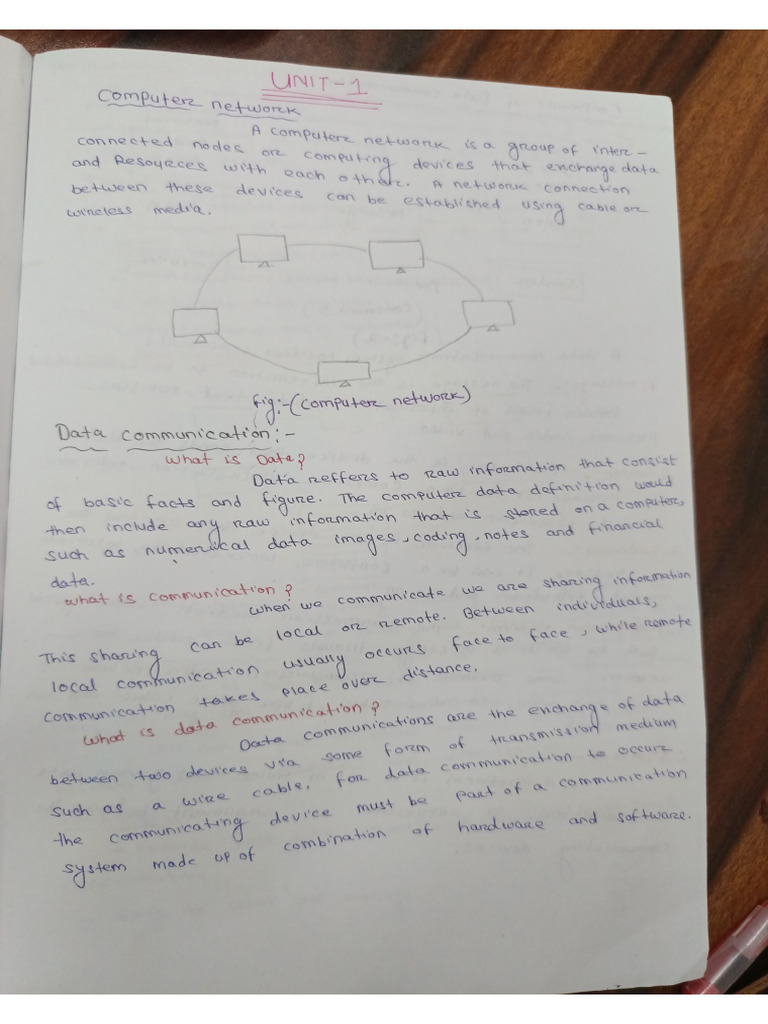 UNIT-1
Computer network
A computer network is a group of inter-
connected nodes or computing devices that exchange data
and Resources with each other. A network connection
between these devices can be established using cable or
wireless media.
fig:-(computer network)
Data communication:-
What is Data?
Data reffers to raw information that consist
of basic facts and figure. The computer data definition would
then include any raw information that is stored on a computer,
such as numerical data images, coding, notes and financial
data.
what is communication?
When we communicate we are sharing information
This sharing can be local or remote. Between individuals,
local communication usually occurs face to face, while remote
communication takes place over distance.
what is data communication?
Data communications are the exchange of data
between two devices via some form of transmission medium
such as a wire cable. for data communication to occur
the communicating device must be part of a communication
system made up of combination of hardware and software.